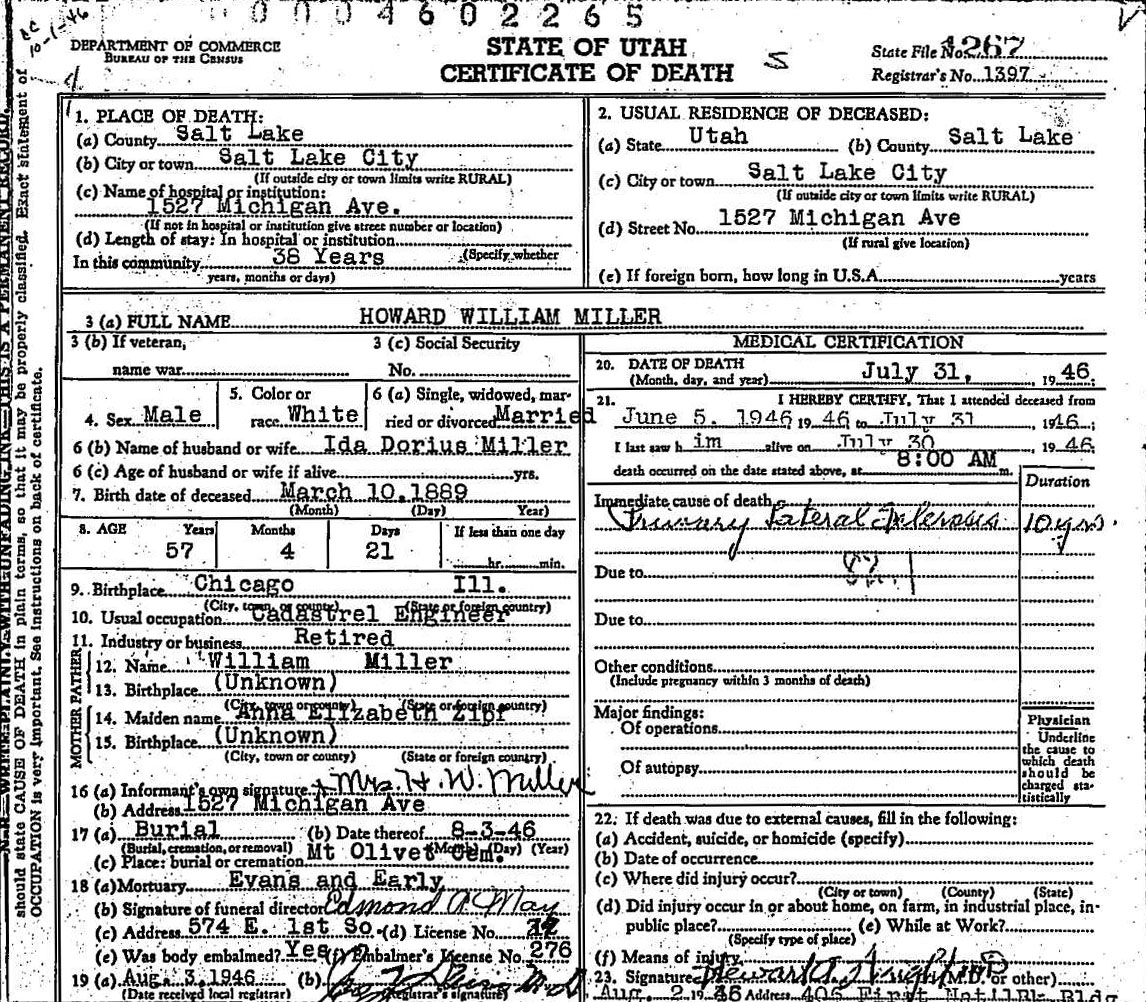 0 0 0 4 6 0 2 2 6 5
10-1-46
DEPARTMENT OF COMMERCE
BUREAU OF THE CENSUS
STATE OF UTAH
CERTIFICATE OF DEATH
S
State File No. 1267
Registrar's No. 1397
should state CAUSE OF DEATH in plain terms, so that it may be properly classified. Exact statement of
OCCUPATION is very important. See instructions on back of certificate.
1. PLACE OF DEATH:
(a) County Salt Lake
(b) City or town Salt Lake City
(If outside city or town limits write RURAL)
(c) Name of hospital or institution:
1527 Michigan Ave.
(If not in hospital or institution give street number or location)
(d) Length of stay: In hospital or institution
(Specify whether
In this community 38 Years
years, months or days)
2. USUAL RESIDENCE OF DECEASED:
(a) State Utah (b) County Salt Lake
(c) City or town Salt Lake City
(If outside city or town limits write RURAL)
(d) Street No. 1527 Michigan Ave
(If rural give location)
(e) If foreign born, how long in U.S.A. years
3 (a) FULL NAME HOWARD WILLIAM MILLER
3 (b) If veteran, 3 (c) Social Security
name war No.
4. Sex Male 5. Color or race White 6 (a) Single, widowed, married or divorced Married
6 (b) Name of husband or wife Ida Dorius Miller
6 (c) Age of husband or wife if alive yrs.
7. Birth date of deceased March 10, 1889
(Month) (Day) Year)
8. AGE Years Months Days If less than one day
57 4 21 hr. min.
9. Birthplace Chicago Ill.
(City, town, or county) (State or foreign country)
10. Usual occupation Cadastrel Engineer
11. Industry or business Retired
FATHER
12. Name William Miller
13. Birthplace (Unknown)
(City, town or county) (State or foreign country)
MOTHER
14. Maiden name Anna Elizabeth Zipf
15. Birthplace (Unknown)
(City, town or county) (State or foreign country)
16 (a) Informant's own signature Mrs. H. W. Miller
(b) Address 1527 Michigan Ave
17 (a) Burial (b) Date thereof 8-3-46
(Burial, cremation, or removal) (Month) (Day) (Year)
(c) Place: burial or cremation Mt Olivet Cem.
18 (a) Mortuary Evans and Early
(b) Signature of funeral director Edmond A. May
(c) Address 574 E. 1st So. (d) License No.
(e) Was body embalmed? Yes (f) Embalmer's License No. 276
19 (a) Aug. 3, 1946 (b) M.D.
(Date received local registrar) (Registrar's signature)
MEDICAL CERTIFICATION
20. DATE OF DEATH
(Month, day, and year) July 31, 1946;
21. I HEREBY CERTIFY, That I attended deceased from
June 5. 1946 19 46 to July 31 1946;
I last saw h im alive on July 30 1946;
death occurred on the date stated above, at 8:00 AM m.
Duration
Immediate cause of death
Primary Lateral Sclerosis 10 yrs.
Due to
Due to
Other conditions
(Include pregnancy within 3 months of death)
Major findings:
Of operations
Of autopsy
Physician
Underline
the cause to
which death
should be
charged sta-
tistically
22. If death was due to external causes, fill in the following:
(a) Accident, suicide, or homicide (specify)
(b) Date of occurrence
(c) Where did injury occur?
(City or town) (County) (State)
(d) Did injury occur in or about home, on farm, in industrial place, in-
public place? (e) While at Work?
(Specify type of place)
(f) Means of injury
23. Signature (M.D. or other)
Aug. 2 19 46 Address 406 First Natil Bk Bldg